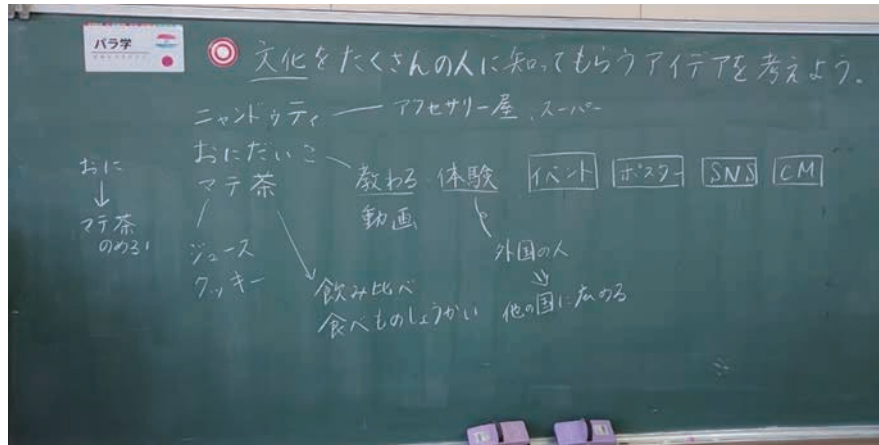 パラ学
文化をたくさんの人に知ってもらうアイデアを考えよう。
ニャンドゥティ ― アクセサリー屋、スーパー
おにだいこ
教わる 体験 イベント ポスター SNS CM
動画
マテ茶
おに
↓
マテ茶
のめる!
ジュース
クッキー
飲み比べ
食べものしょうかい
外国の人
↓
他の国に広める